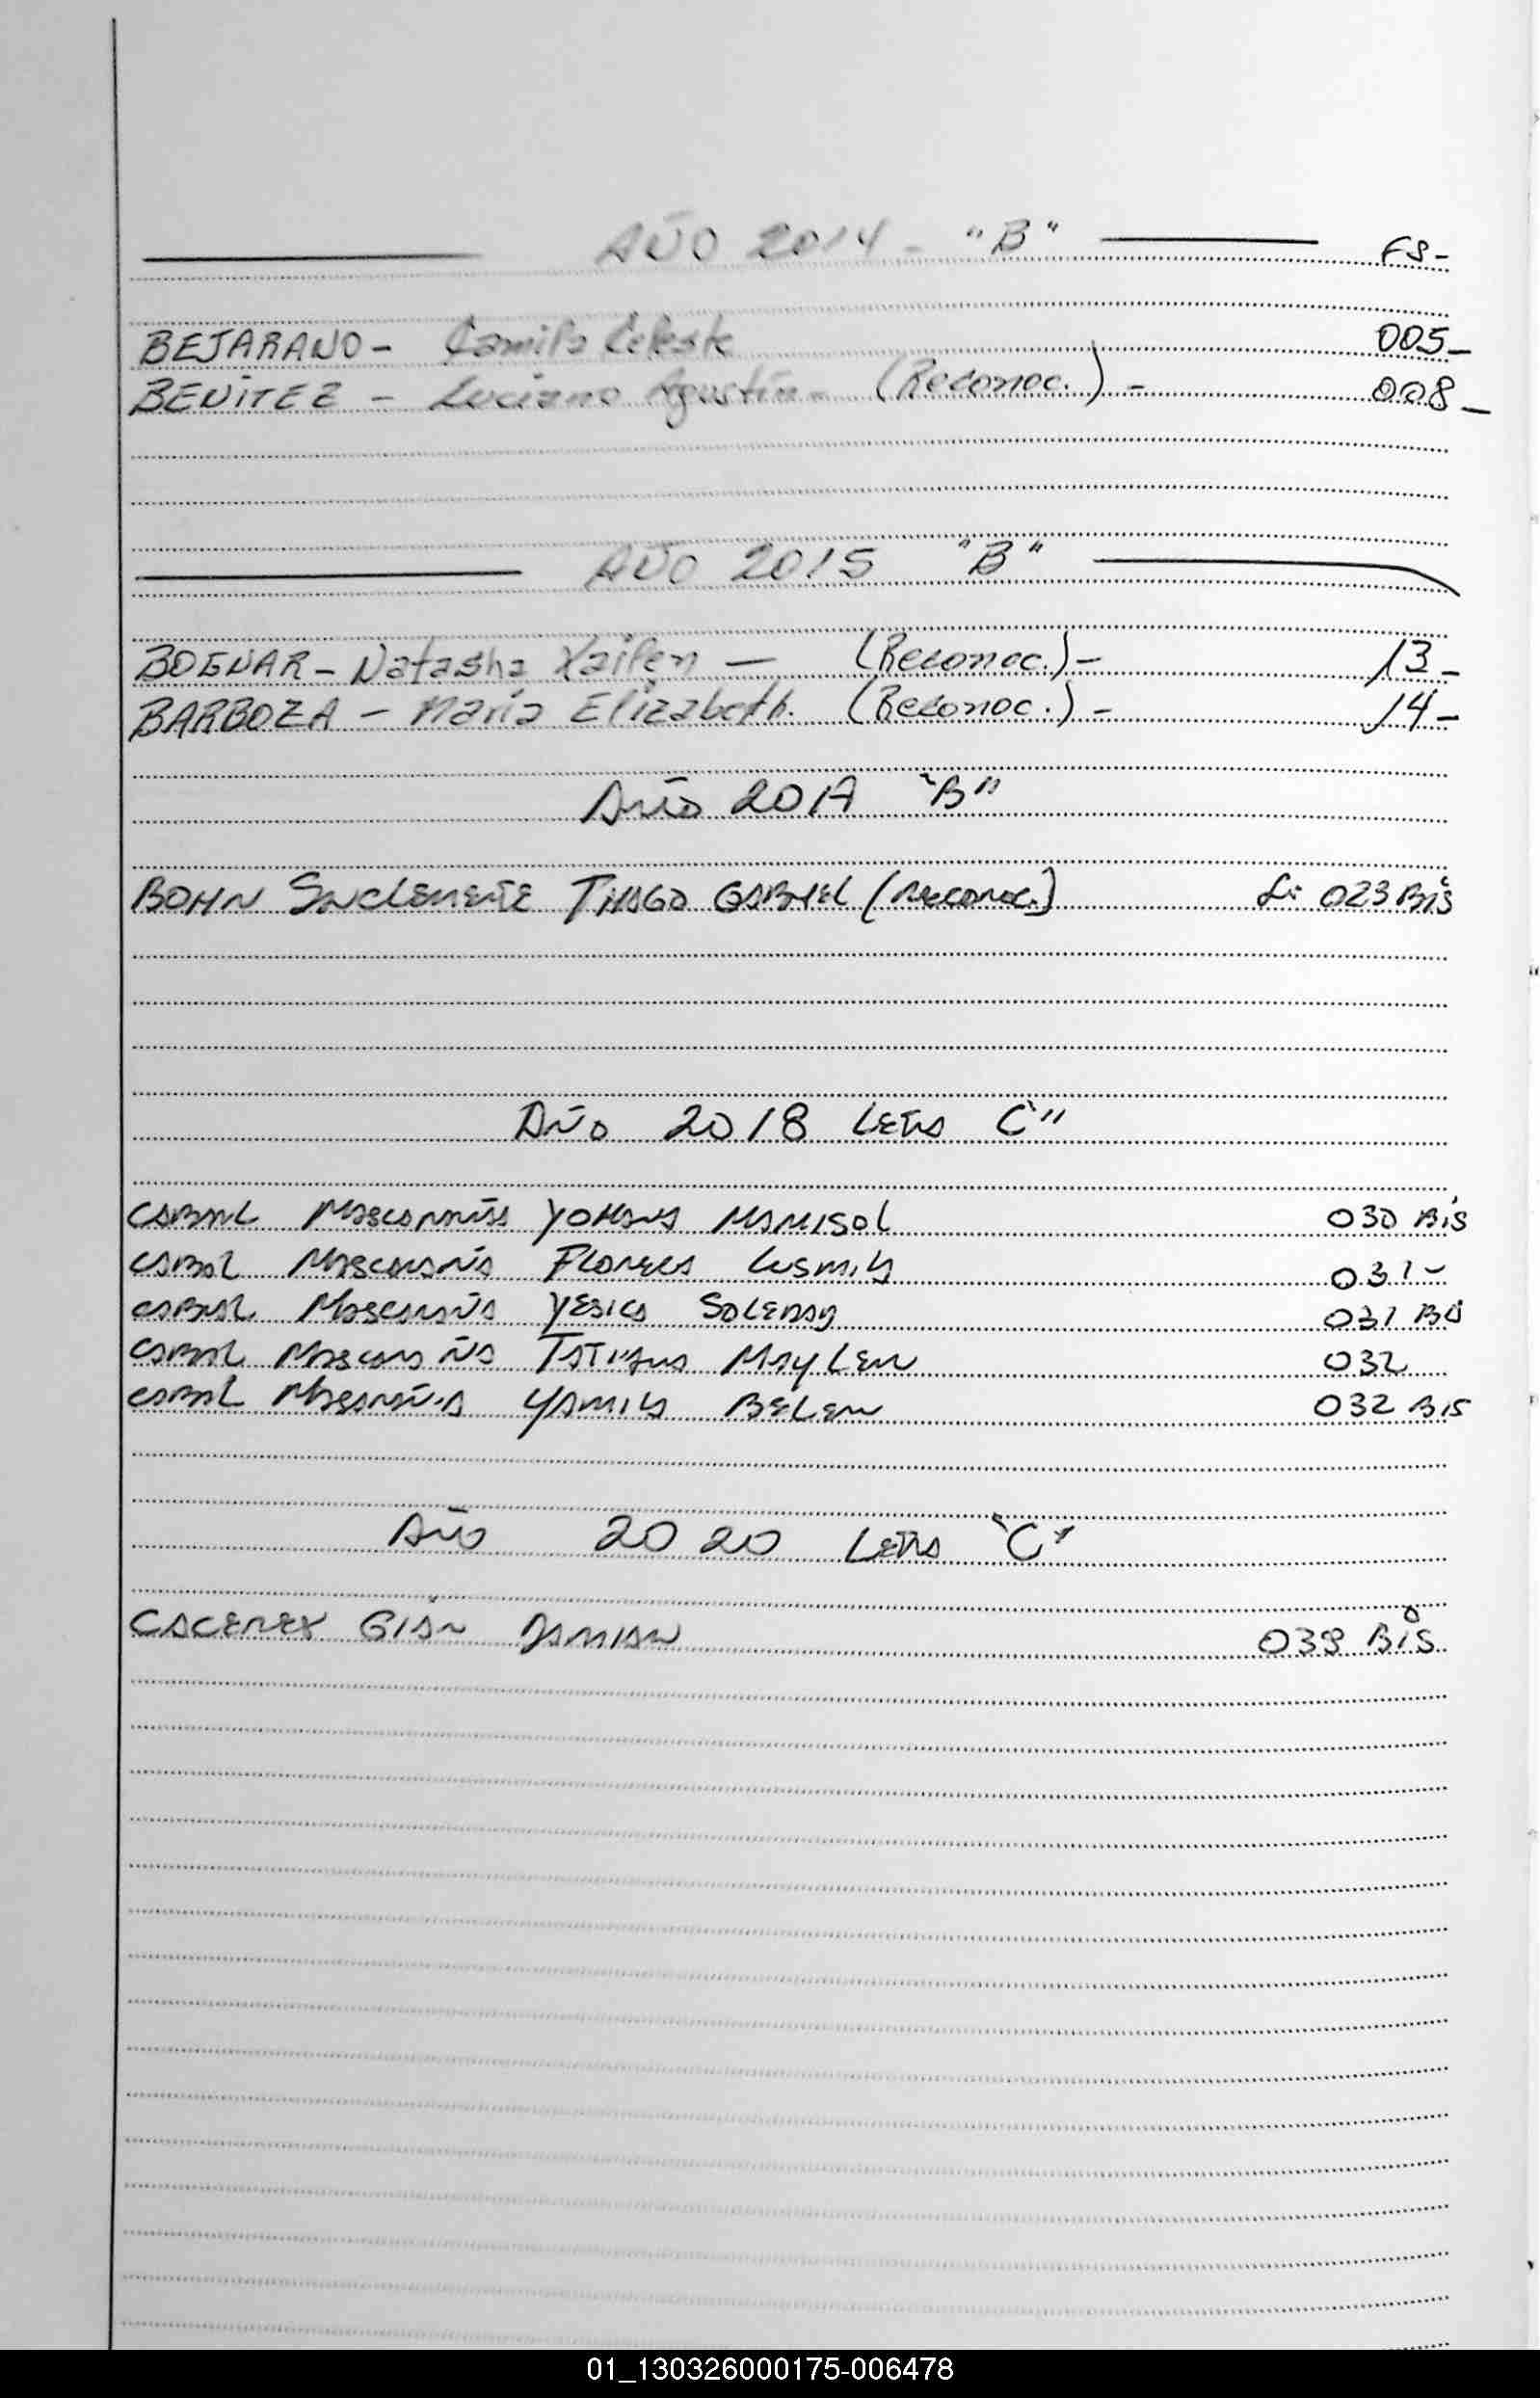 AÑO 2014 - "B" FS-
BEJARANO - Camila Celeste 005-
BENITEZ - Luciano Agustín - (Reconoc.) - 008-
AÑO 2015 "B"
BOGNAR - Natasha Xailen - (Reconoc.) - 13-
BARBOZA - María Elizabeth. (Reconoc.) - 14-
Año 2017 "B"
BOHN THIAGO GABRIEL (Reconoc.) 023 BIS
Año 2018 Letra C"
CABRAL YOHANA MARISOL 030 BIS
CABRAL 031-
CABRAL YESICA SOLEDAD 031 BIS
CABRAL TATIANA MAYLEN 032
CABRAL YAMILA BELEN 032 BIS
Año 2020 Letra "C"
CACERES GIAN DAMIAN 039 BIS
01_130326000175-006478